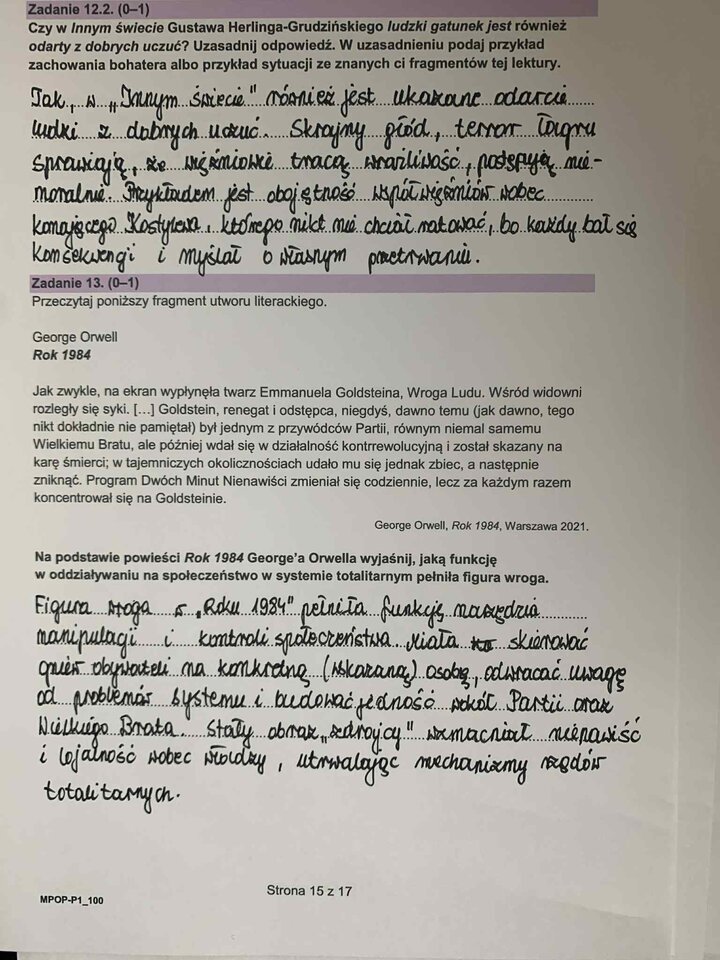 Zadanie 12.2. (0–1)
Czy w Innym świecie Gustawa Herlinga-Grudzińskiego ludzki gatunek jest również
odarty z dobrych uczuć? Uzasadnij odpowiedź. W uzasadnieniu podaj przykład
zachowania bohatera albo przykład sytuacji ze znanych ci fragmentów tej lektury.
Tak, w „Innym świecie" również jest ukazane odarcie
ludzki z dobrych uczuć. Skrajny głód, terror łagru
sprawiają, że więźniowie tracą wrażliwość, postępują nie-
moralnie. Przykładem jest obojętność współwięźniów wobec
konającego Kostylewa, którego nikt nie chciał ratować, bo każdy bał się
konsekwencji i myślał o własnym przetrwaniu.
Zadanie 13. (0–1)
Przeczytaj poniższy fragment utworu literackiego.
George Orwell
Rok 1984
Jak zwykle, na ekran wypłynęła twarz Emmanuela Goldsteina, Wroga Ludu. Wśród widowni
rozległy się syki. […] Goldstein, renegat i odstępca, niegdyś, dawno temu (jak dawno, tego
nikt dokładnie nie pamiętał) był jednym z przywódców Partii, równym niemal samemu
Wielkiemu Bratu, ale później wdał się w działalność kontrrewolucyjną i został skazany na
karę śmierci; w tajemniczych okolicznościach udało mu się jednak zbiec, a następnie
zniknąć. Program Dwóch Minut Nienawiści zmieniał się codziennie, lecz za każdym razem
koncentrował się na Goldsteinie.
George Orwell, Rok 1984, Warszawa 2021.
Na podstawie powieści Rok 1984 George'a Orwella wyjaśnij, jaką funkcję
w oddziaływaniu na społeczeństwo w systemie totalitarnym pełniła figura wroga.
Figura wroga w „Roku 1984" pełniła funkcję narzędzia
manipulacji i kontroli społeczeństwa. Miała skierować
gniew obywateli na konkretną (wskazaną) osobę, odwracać uwagę
od problemów systemu i budować jedność wokół Partii oraz
Wielkiego Brata. Stały obraz „zdrajcy" wzmacniał nienawiść
i lojalność wobec władzy, utrwalając mechanizmy rządów
totalitarnych.
Strona 15 z 17
MPOP-P1_100